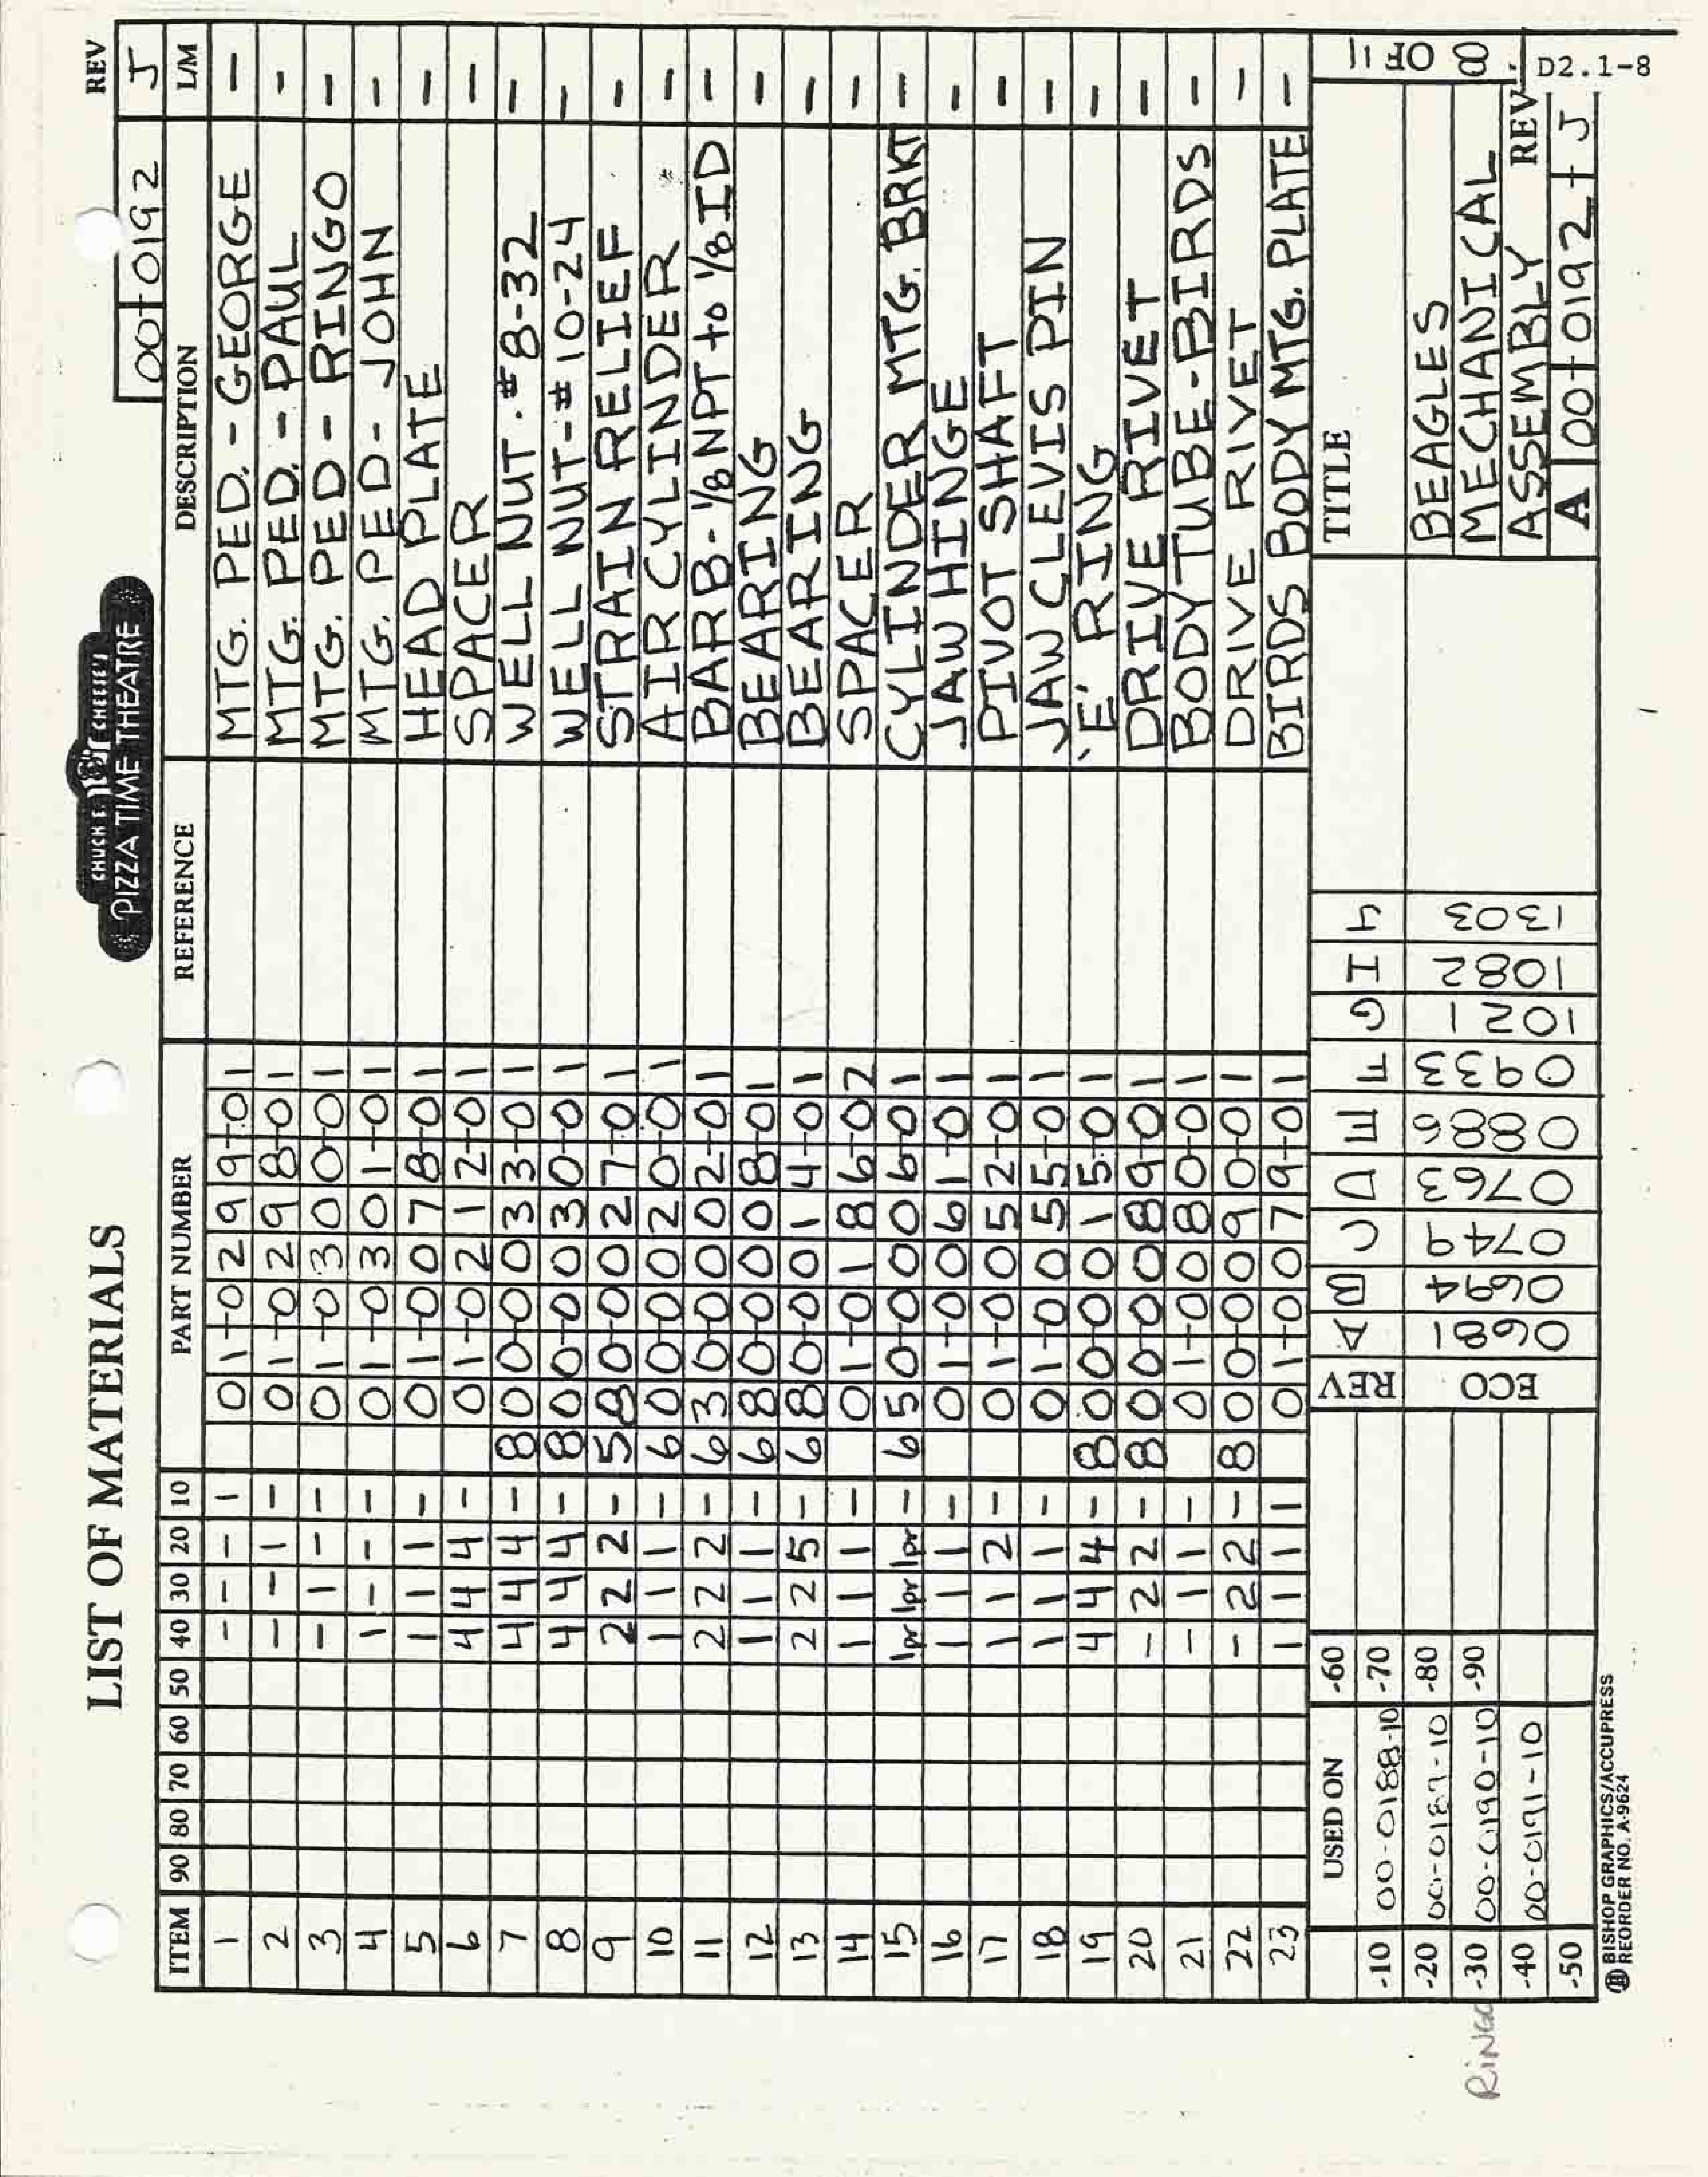 LIST OF MATERIALS
CHUCK E. CHEESE'S
PIZZA TIME THEATRE
REV
00-0192 J
ITEM 90 80 70 60 50 40 30 20 10 PART NUMBER REFERENCE DESCRIPTION L/M
1 - - - 1 01-0299-01 MTG. PED. - GEORGE -
2 - - 1 - 01-0298-01 MTG. PED. - PAUL -
3 - 1 - - 01-0300-01 MTG. PED - RINGO -
4 1 - - - 01-0301-01 MTG. PED - JOHN -
5 1 1 1 - 01-0078-01 HEAD PLATE -
6 4 4 4 - 01-0212-01 SPACER -
7 4 4 4 - 800-0033-01 WELL NUT - #8-32 -
8 4 4 4 - 800-0030-01 WELL NUT - #10-24 -
9 2 2 2 - 580-0027-01 STRAIN RELIEF -
10 1 1 1 - 600-0020-01 AIR CYLINDER -
11 2 2 2 - 630-0002-01 BARB - 1/8 NPT to 1/8 ID -
12 1 1 1 - 680-0008-01 BEARING -
13 2 2 5 - 680-0014-01 BEARING -
14 1 1 1 - 01-0186-02 SPACER -
15 1pr 1pr 1pr - 650-0006-01 CYLINDER MTG. BRKT -
16 1 1 1 - 01-0061-01 JAW HINGE -
17 1 1 2 - 01-0052-01 PIVOT SHAFT -
18 1 1 1 - 01-0055-01 JAW CLEVIS PIN -
19 4 4 4 - 800-0015-01 'E' RING -
20 - 2 2 - 800-0089-01 DRIVE RIVET -
21 - 1 1 - 01-0080-01 BODY TUBE - BIRDS -
22 - 2 2 - 800-0090-01 DRIVE RIVET -
23 1 1 1 1 01-0079-01 BIRDS BODY MTG. PLATE -
USED ON -60
-10 00-0188-10 -70
-20 00-0189-10 -80
RINGO -30 00-0190-10 -90
-40 00-0191-10
-50
REV A B C D E F G I J
ECO 0681 0694 0749 0763 0886 0933 1021 1082 1303
TITLE 8 OF 11
BEAGLES
MECHANICAL
ASSEMBLY REV
A 00-0192- J
D2.1-8
BISHOP GRAPHICS/ACCUPRESS
REORDER NO. A-9624